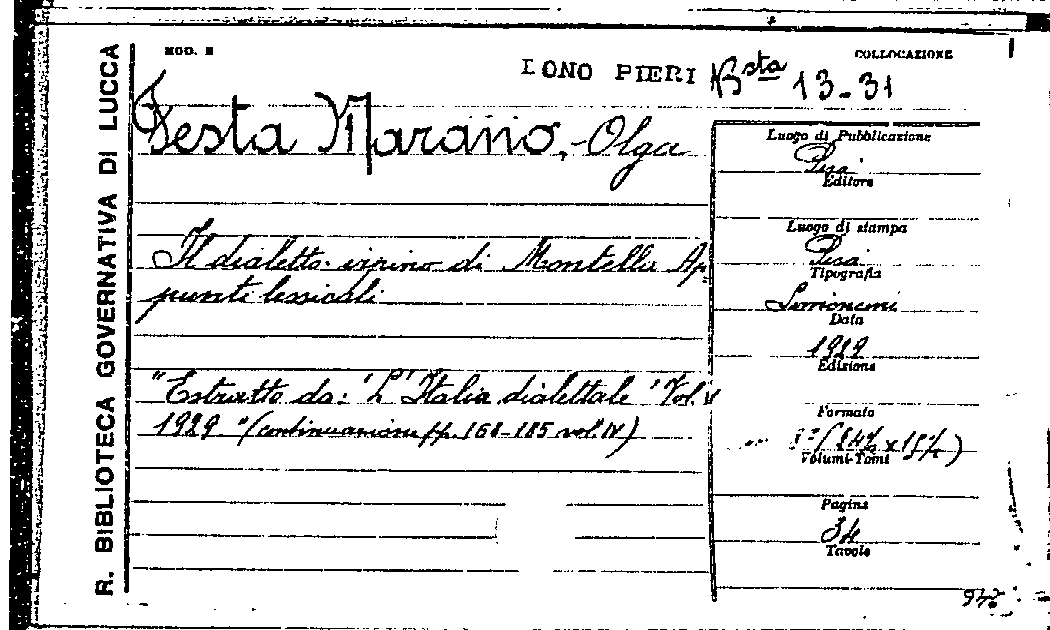 R. BIBLIOTECA GOVERNATIVA DI LUCCA
MOD. B
COLLOCAZIONE
DONO PIERI Bsta 13-31
Festa Marano, - Olga
Il dialetto irpino di Montella Ap=
punti lessicali
"Estratto da: 'L'Italia dialettale' Vol. V
1929 "(continuazione pp. 168-185 vol. IV)
Luogo di Pubblicazione
Pisa
Editore
Luogo di stampa
Pisa
Tipografia
Simoncini
Data
1929
Edizione
Formato
Volumi-Tomi
Pagine
34
Tavole